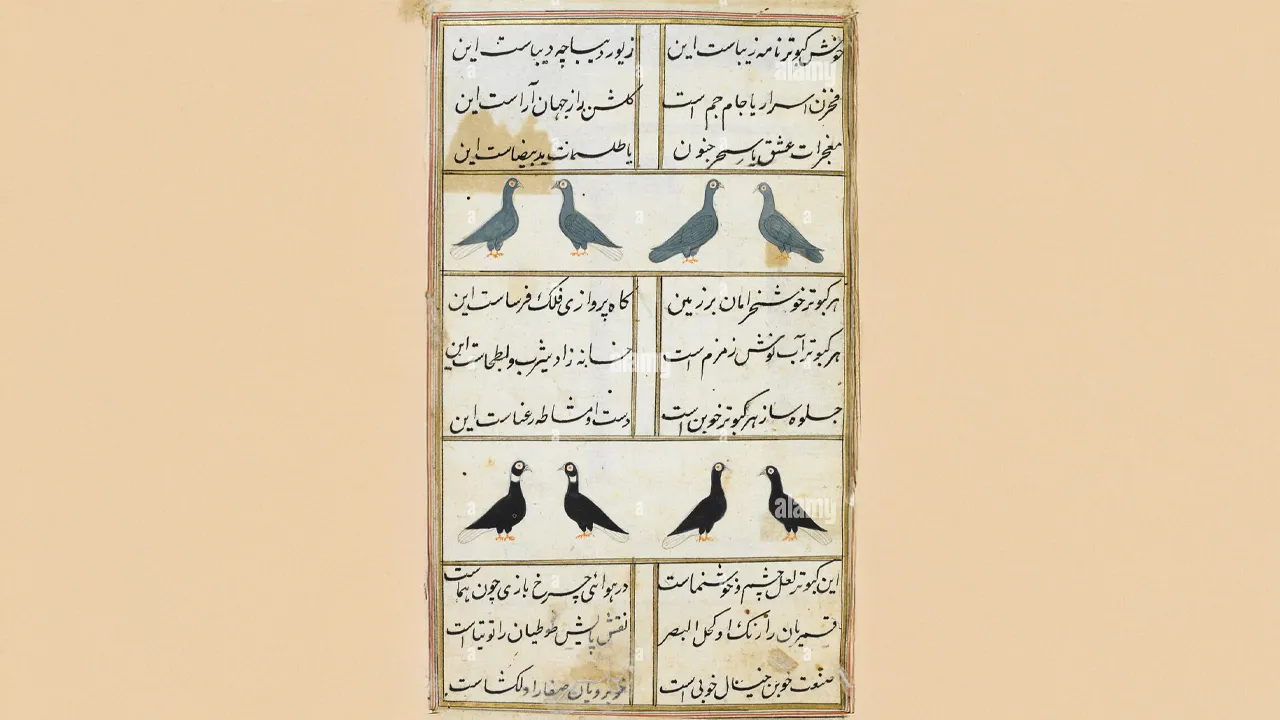 خوش کبوتر نامه زیباست این
زیور دیباچه دیباست این
مخزن اسرار یا جام جم است
گلشن راز جهان آراست این
معجزات عشق یا سحر جنون
یا طلسمات ید بیضاست این
هر کبوتر خوشخرامان بر زمین
گاه پروازی فلک فرساست این
هر کبوتر آب نوش زمزم است
خانه زاد یثرب و بطحاست این
جلوه ساز هر کبوتر خوبن است
دست او مشاطه رعناست این
این کبوتر لعل چشم و خوشنماست
در هوائی چرخ بازی چون هماست
قمریان را رنگ او کحل البصر
نقش پایش طوطیان را توتیا است
صنعت خوبن خیال خوبی است
خوبرویان صفا را دلکشا است
alamy
alamy
alamy